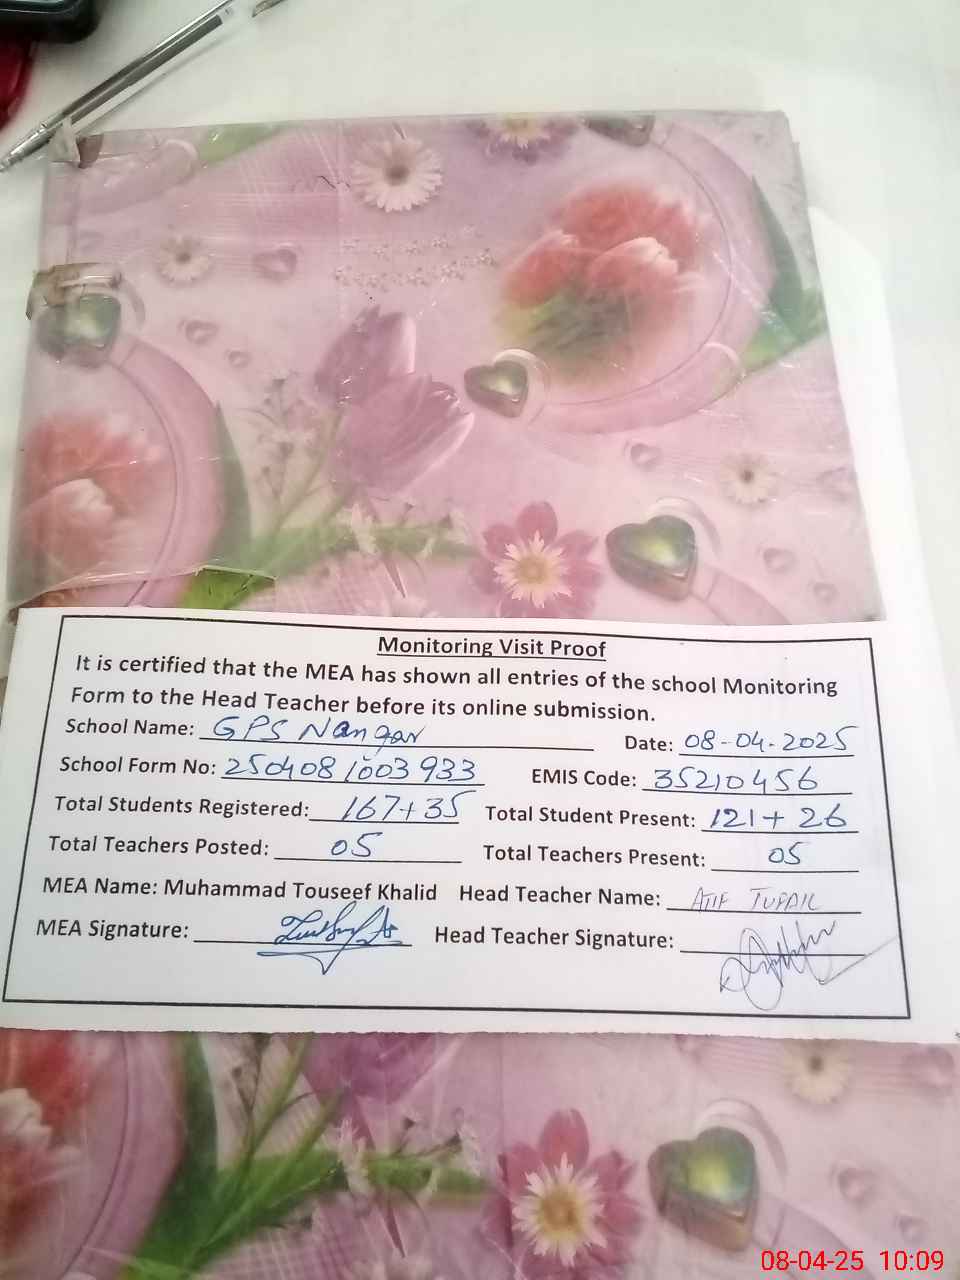 Monitoring Visit Proof
It is certified that the MEA has shown all entries of the school Monitoring
Form to the Head Teacher before its online submission.
School Name: GPS Nangar Date: 08-04-2025
School Form No: 2504081003933 EMIS Code: 35210456
Total Students Registered: 167+35 Total Student Present: 121+26
Total Teachers Posted: 05 Total Teachers Present: 05
MEA Name: Muhammad Touseef Khalid Head Teacher Name: ATIF TUFAIL
MEA Signature: Head Teacher Signature:
08-04-25 10:09